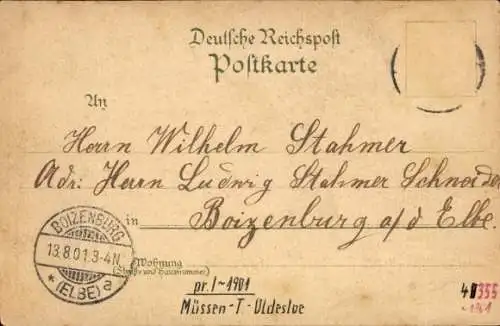 Deutsche Reichspost
Postkarte
An
Herrn Wilhelm Stahmer
Adr: Herrn Ludwig Stahmer Schneider
in Boizenburg a/d Elbe.
BOIZENBURG
13.8.01.3-4N.
* (ELBE) a
Wohnung
(Straße und Hausnummer)
pr. 1~1901
Müssen-T-Oldesloe